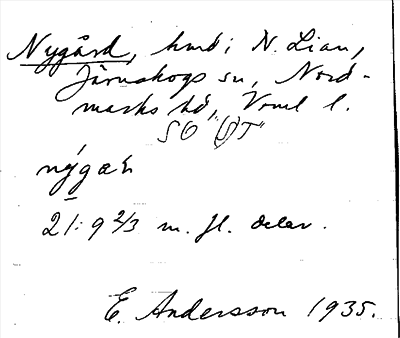 Nygård, hmd i N. Lian,
Järnskogs sn, Nord-
marks hd, Vrml l.
SO "UT"
nýgæɳ
21:9 2/3 m. fl. delar.
E. Andersson 1935.